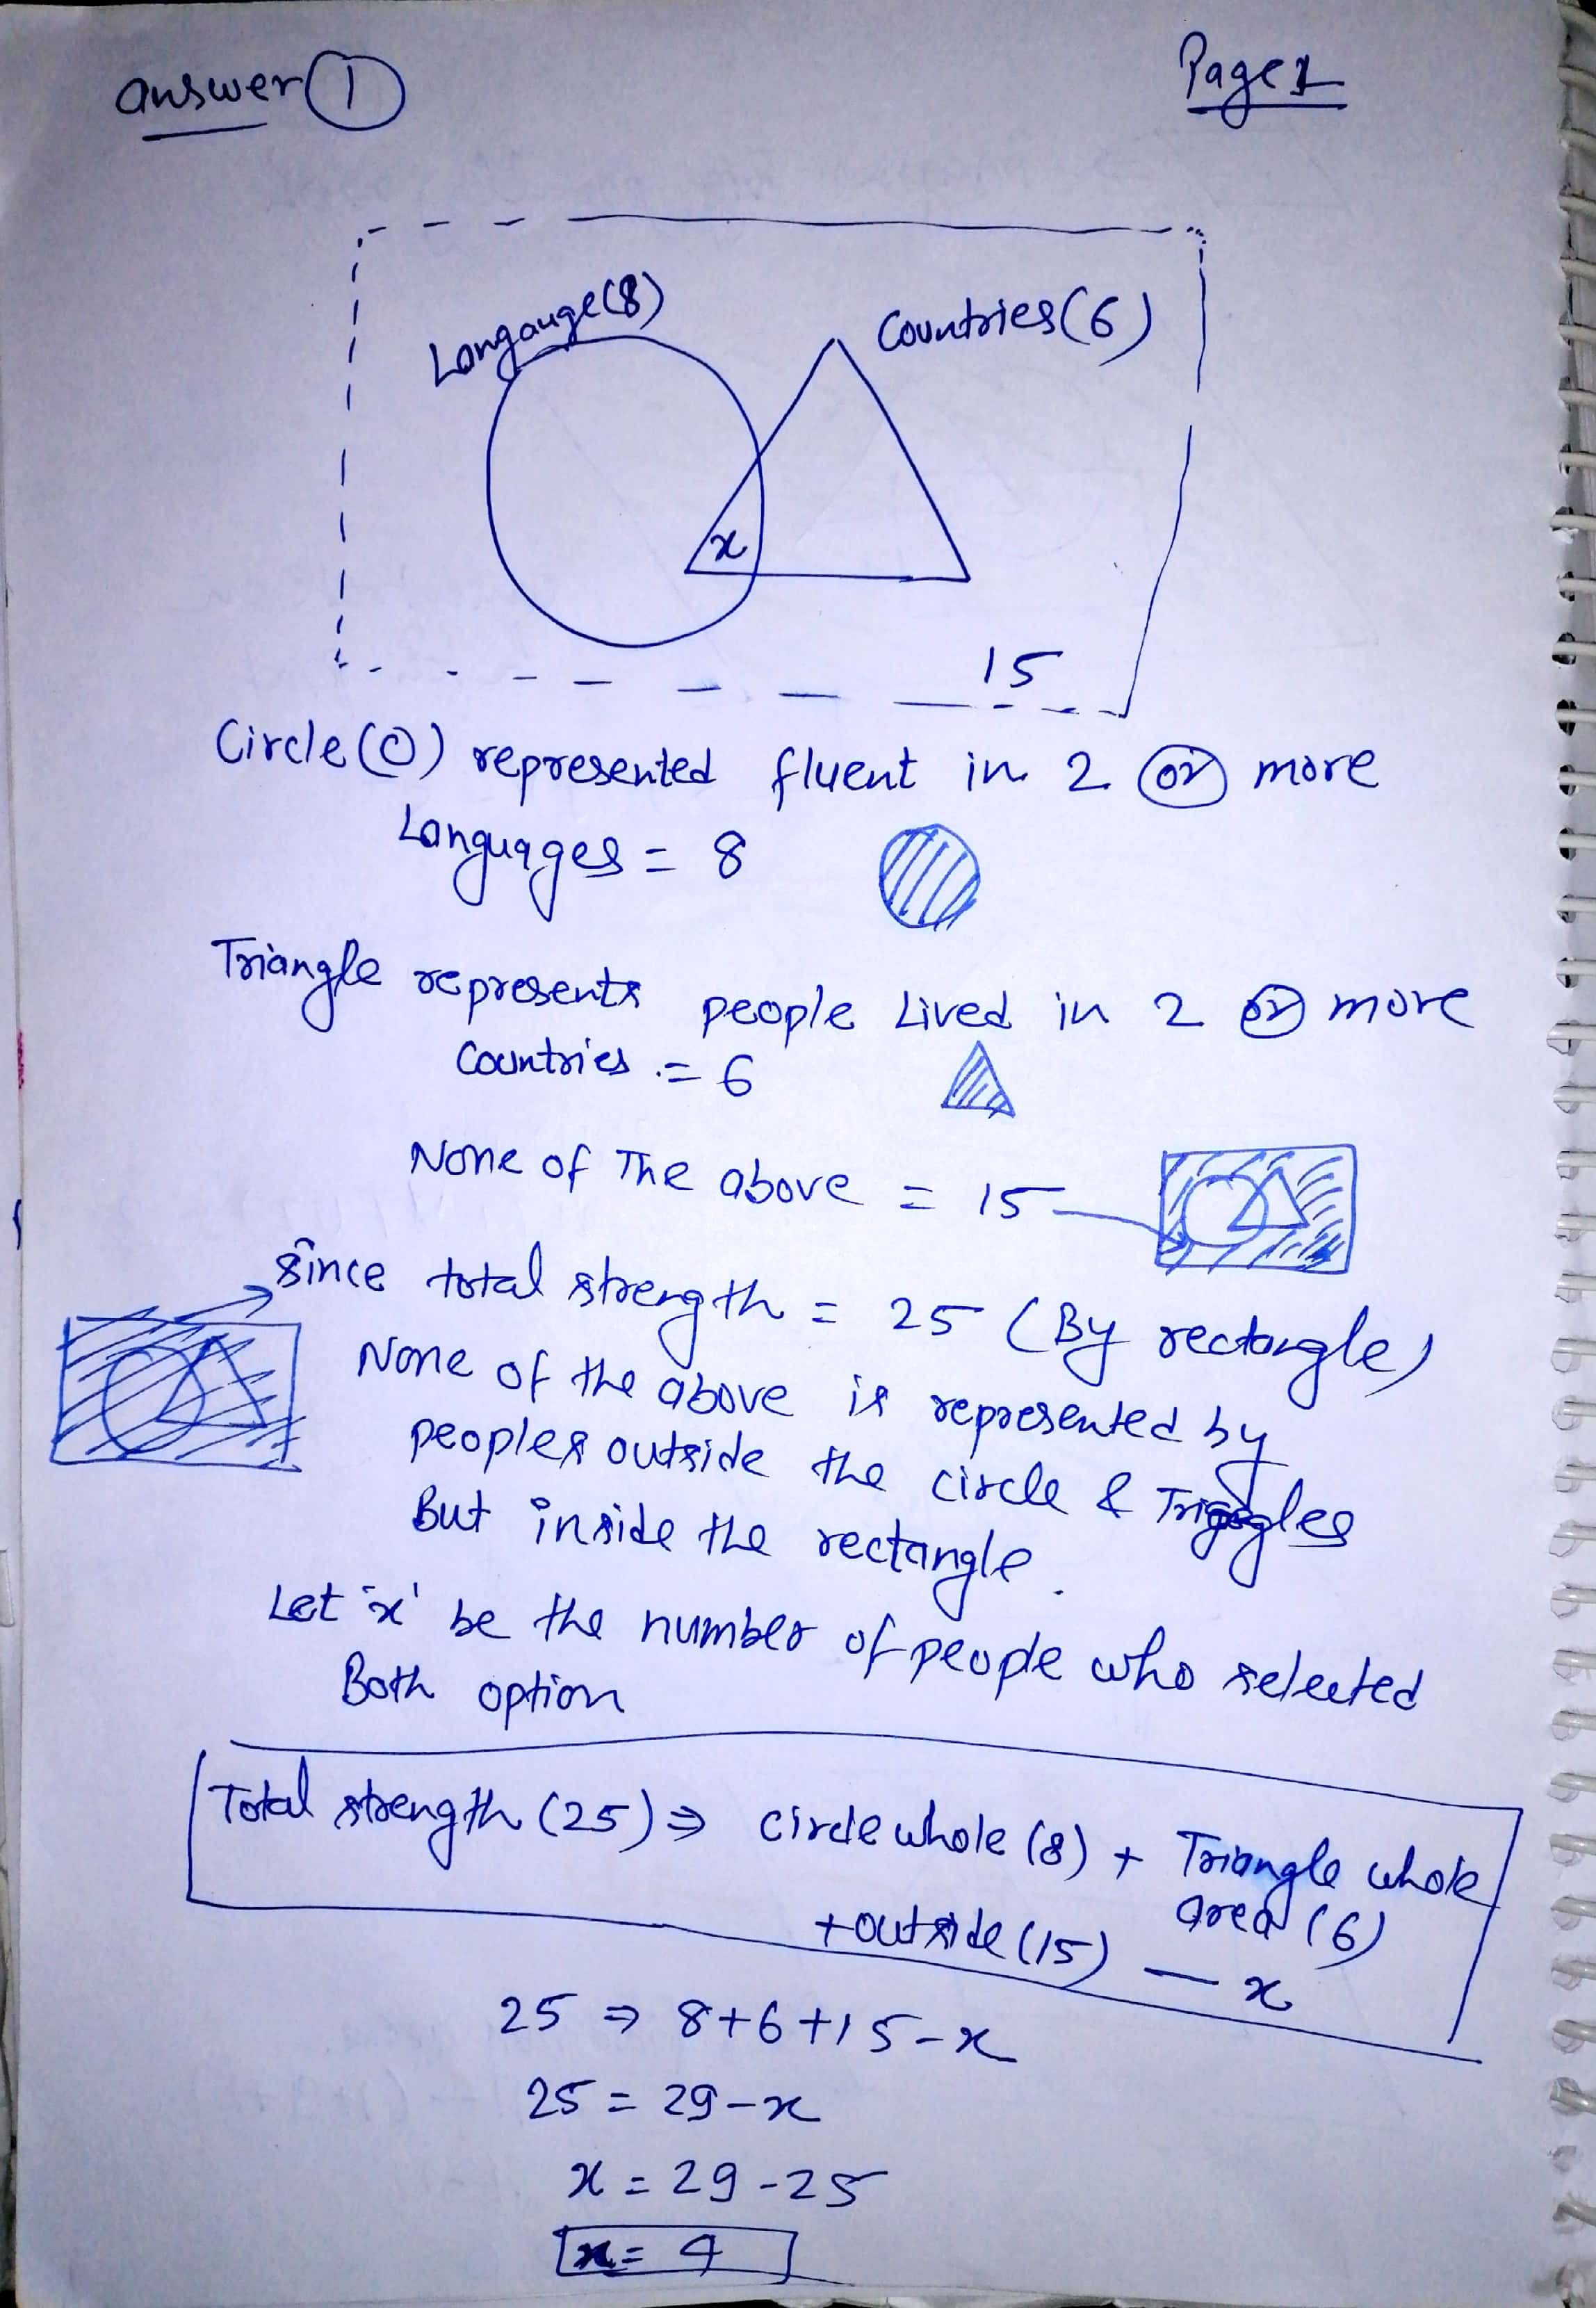 answer 1
Page 1
Langauge(8)
Countries(6)
x
15
Circle (O) represented fluent in 2 or more
Languages = 8
Triangle represents people Lived in 2 or more
Countries .= 6
None of The above = 15
since total strength = 25 (By rectangle)
None of the above is represented by
peoples outside the circle &
But inside the rectangle.
Let 'x' be the number of people who selected
Both option
Total strength (25) ⇒ circle whole (8) + Triangle whole
area (6)
+ outside (15) - x
25 ⇒ 8+6+15-x
25 = 29-x
x = 29-25
x = 4